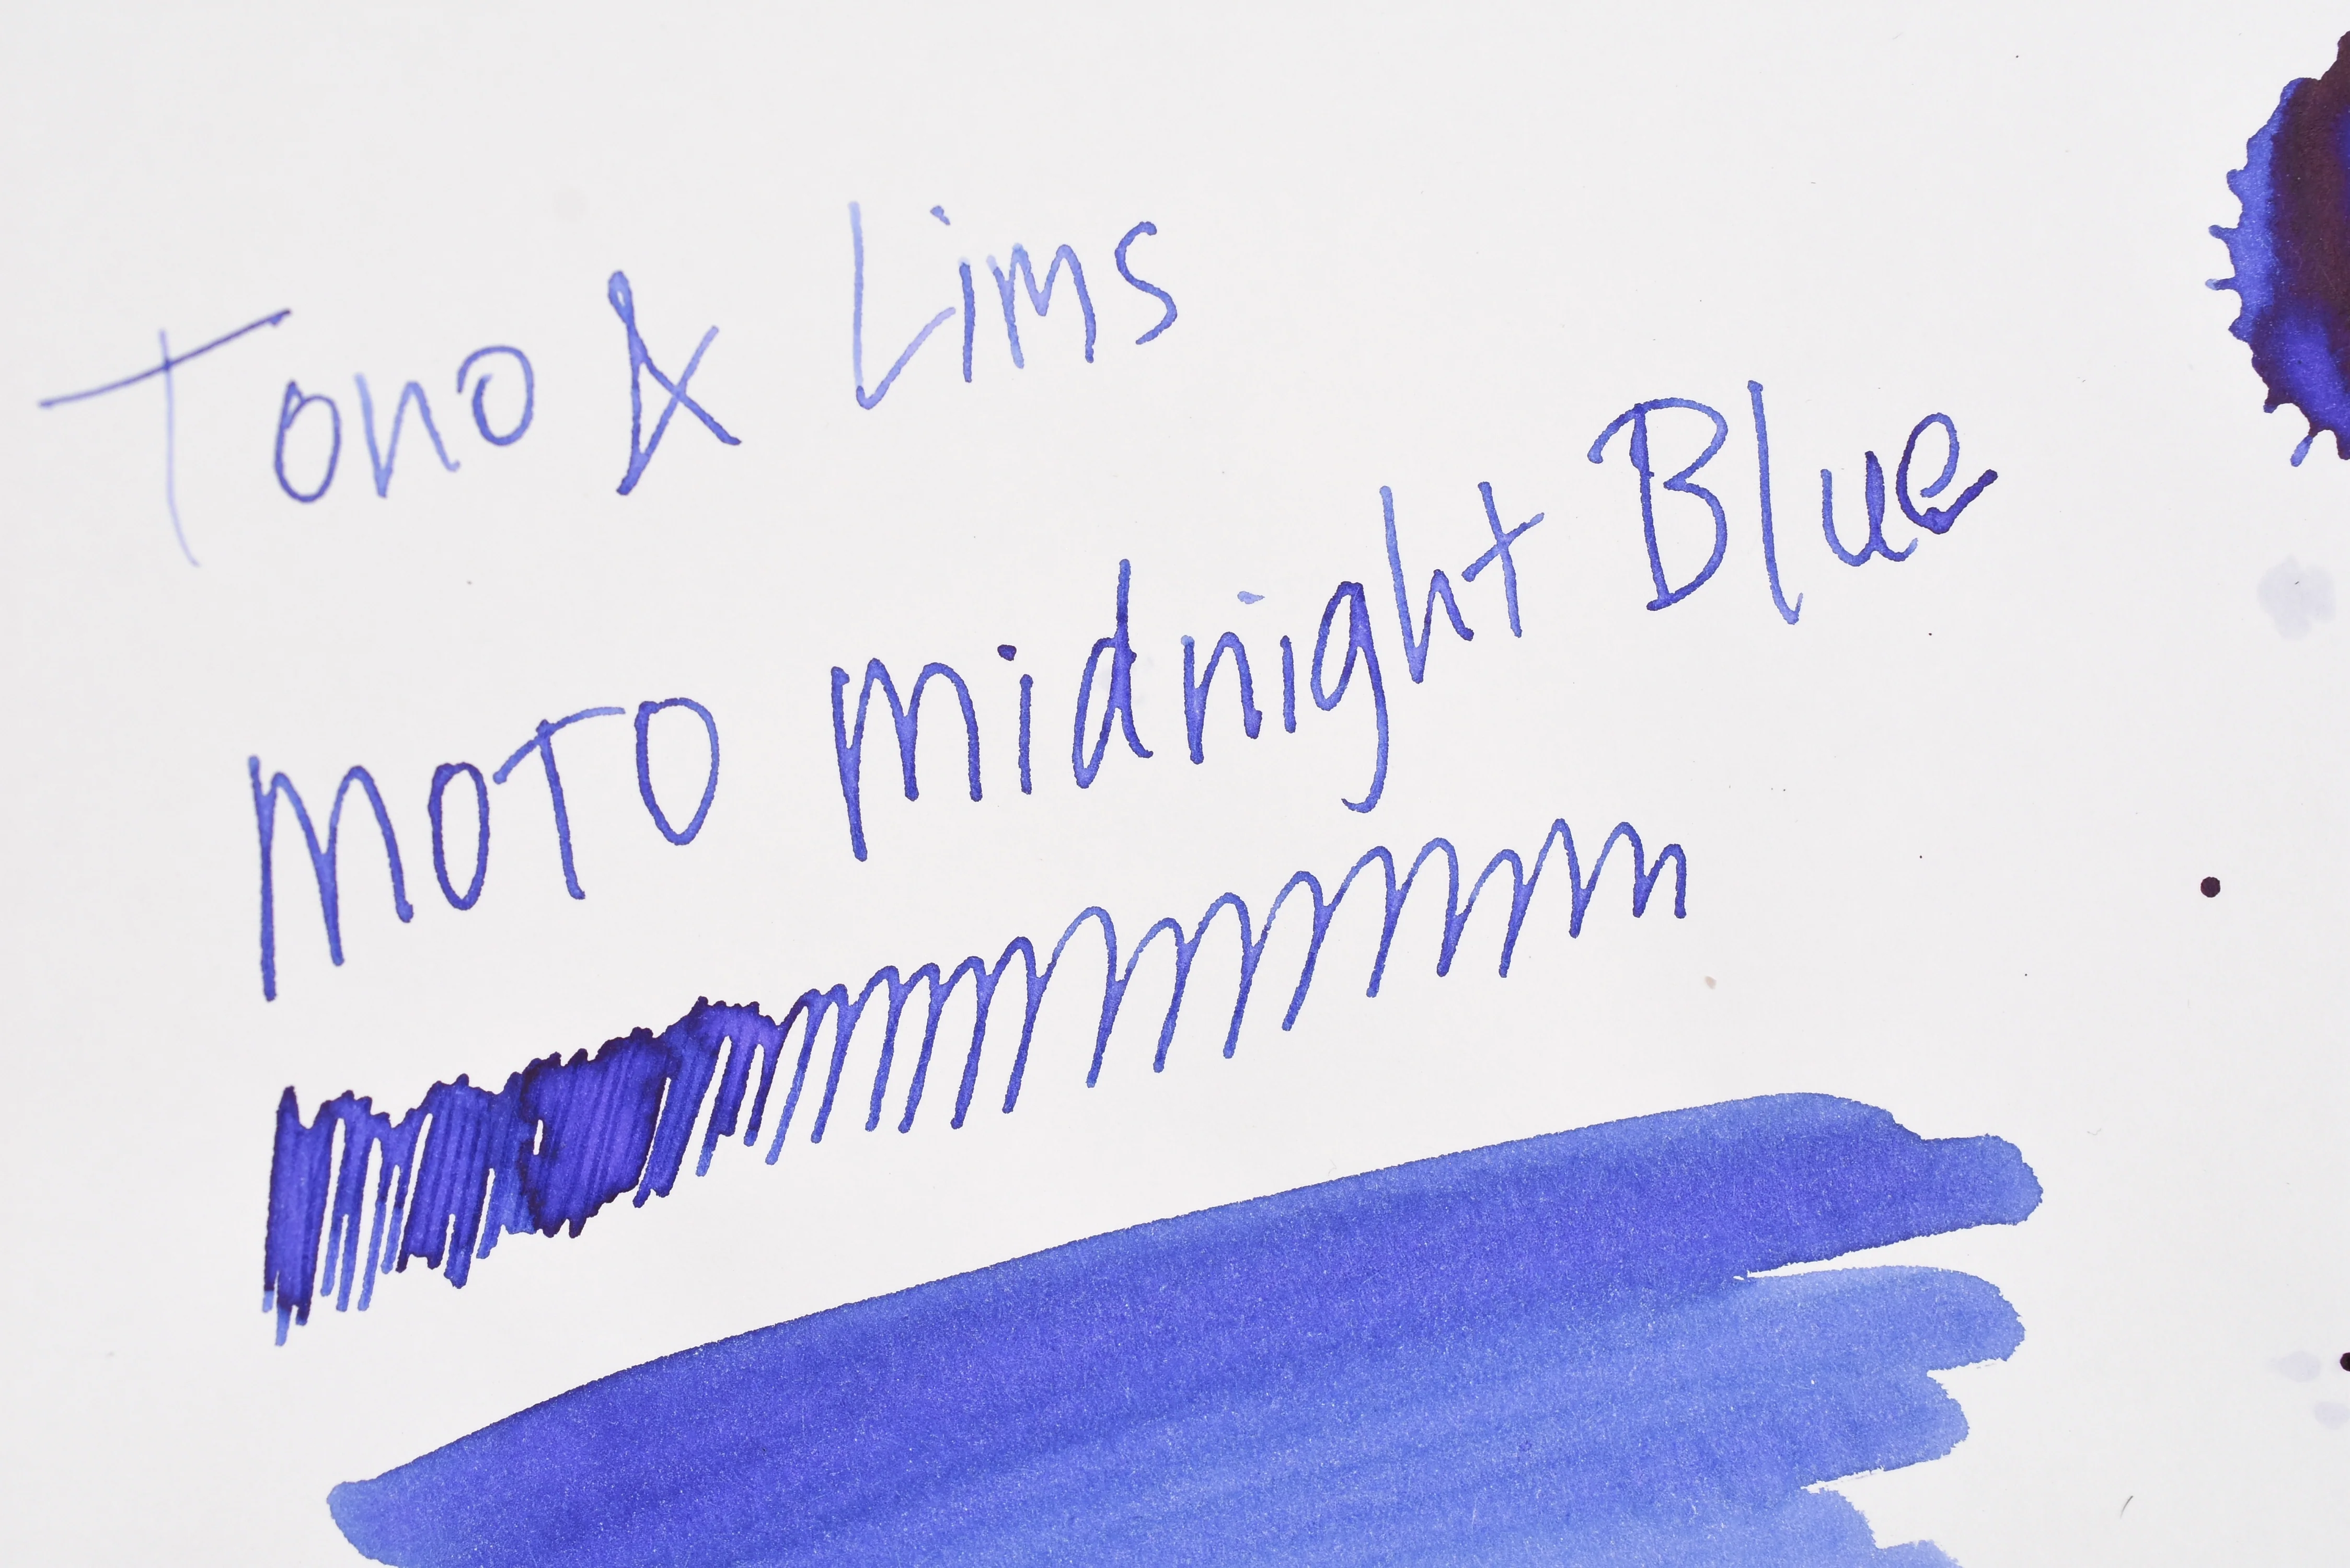 Tono & Lims
MOTO Midnight Blue